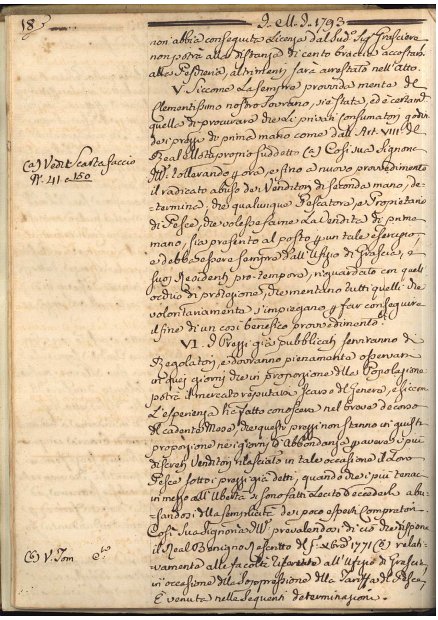 18
D. M. D. 1793
non abbia conseguita Licenza dal Sud.º Sig.r Grasciere
non potrà alla distanza di cento braccia accostarsi
alla Pescheria, altrimenti sarà arrestato nell'atto.
V. Siccome la sempre provvida mente del
Clementissimo nostro Sovrano, sia stata, ed è certam.
quella di procurare che li privati consumatori godin
dei prezzi di prima mano come dall'Art. VIII del
Real Motuproprio suddetto (a) Così sua Signoria
Ill. tollerando p ora, e sino a nuovo provvedimento
il radicato abuso dei Venditori di seconda mano, de-
termina: che qualunque Pescatore, e Proprietario
di Pesce, che volesse farne la vendita di prima
mano, sia presento al posto p un tale esercizio,
e debba essere sempre dall'Ufizio di Grascia, e
suoi Residenti pro-tempore, riguardato con quell'
occhio di protezione, che mentano tutti quelli che
volontariamente s'impiegano p far conseguire
il fine di un così benefico provvedimento.
(a) Vedi Scartafaccio
N. 41 a 150
VI. I Prezzi già pubblicati serviranno di
Regolatori, e dovranno pienamente osservarsi
in quei giorni che in proporzione della Popolazione
potrà il mercato reputarsi scarso del genere, e siccome
l'esperienza ha fatto conoscere nel breve decorso
del cadente Mese, che questi prezzi non stanno in giusta
proporzione nei giorni d'Abbondanza p avere i più
discreti Venditori rilasciato in tale occasione il Loro
Pesce sotto i prezzi già detti, quando che i più tenaci
in mezzo all'Ubertà si sono fatti lecito eccederli abu-
sandosi della semplicità dei poco esperti Compratori
Così sua Signoria Ill. prevalendosi di ciò che dispone
il Real Benigno Rescritto del 1771 (b) relati-
vamente alle facoltà riservate all'Ufizio di Grascia,
in occasione della soppressione della Tariffa del Pesce,
è venuta nelle seguenti determinazioni.
(b) V. Tom. c.